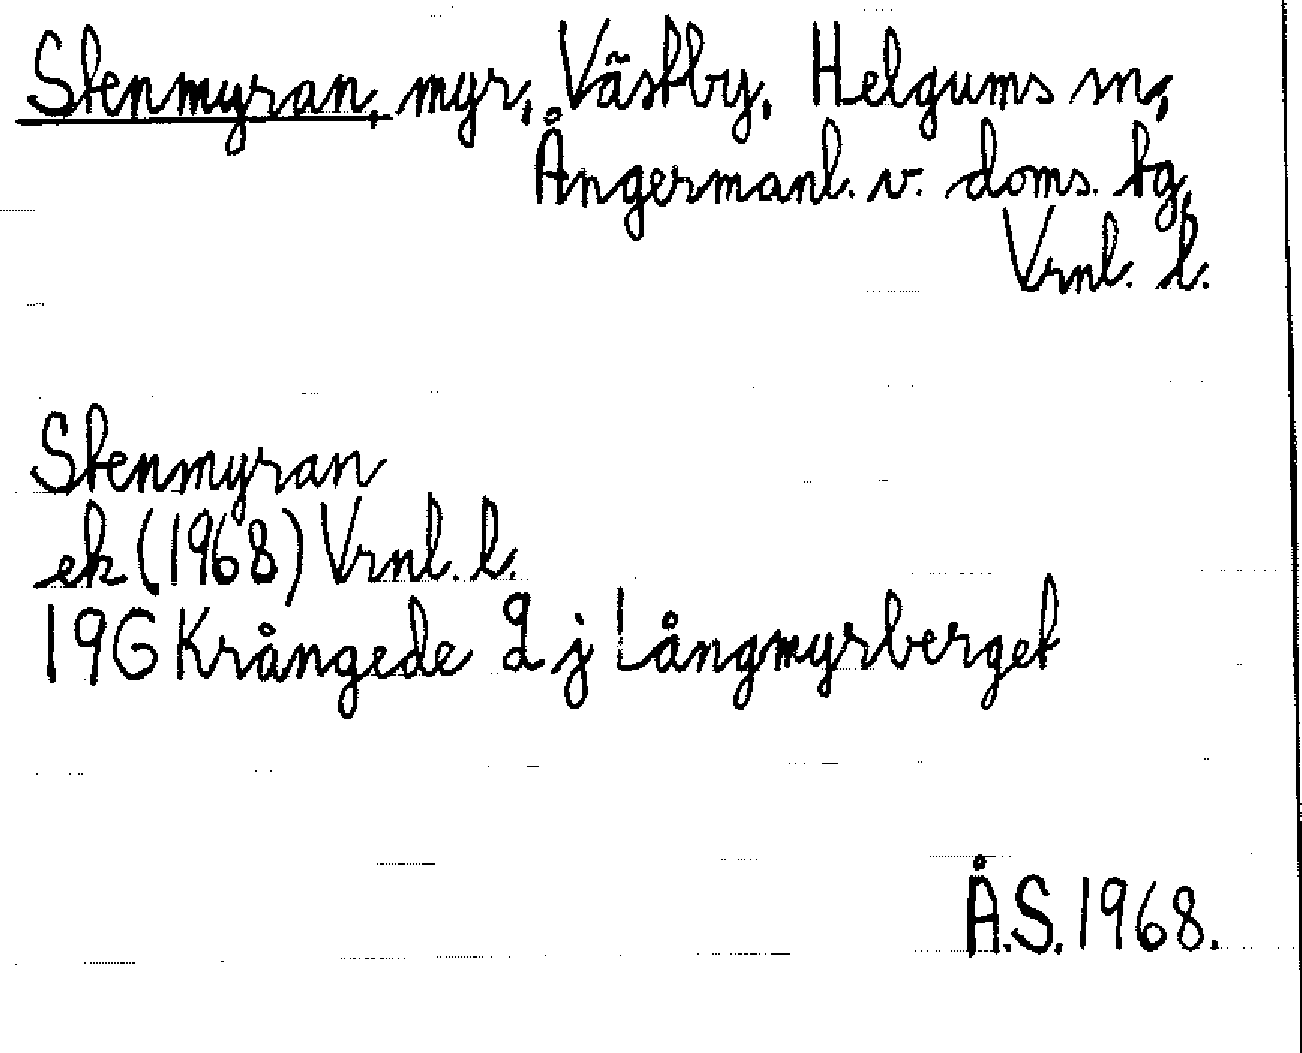 Stenmyran, myr, Västby, Helgums sn,
Ångermanl. v. doms. tg,
Vrnl. l.
Stenmyran
ek (1968) Vrnl. l.
19G Krångede 2 j Långmyrberget
Å.S. 1968.